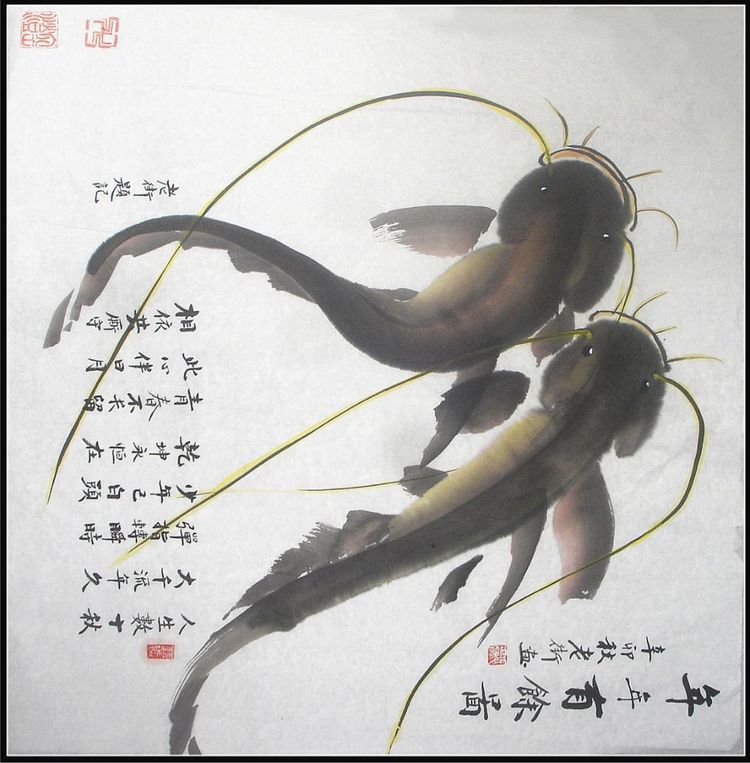 年年有餘圖
辛卯秋老街画
人生數十秋
大千流年久
彈指轉瞬時
少年已白頭
乾坤永恒在
青春不长留
此心伴日月
相依共厮守
老街題記